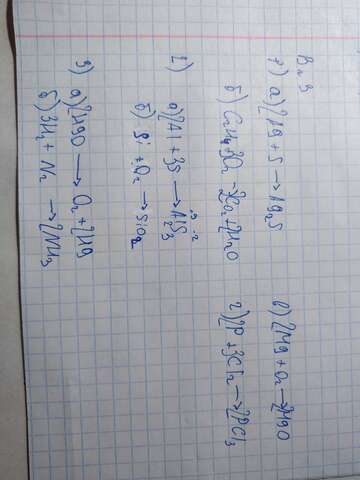 В-3
1) а) 2Ag + S → Ag₂S
в) 2Mg + O₂ → 2MgO
б) C₂H₄ + 3O₂ → 2CO₂ + 2H₂O
г) 2P + 3Cl₂ → 2PCl₃
2) а) 2Al + 3S → Al₂S₃
б) Si + O₂ → SiO₂
3) а) 2HgO → O₂ + 2Hg
б) 3H₂ + N₂ → 2NH₃